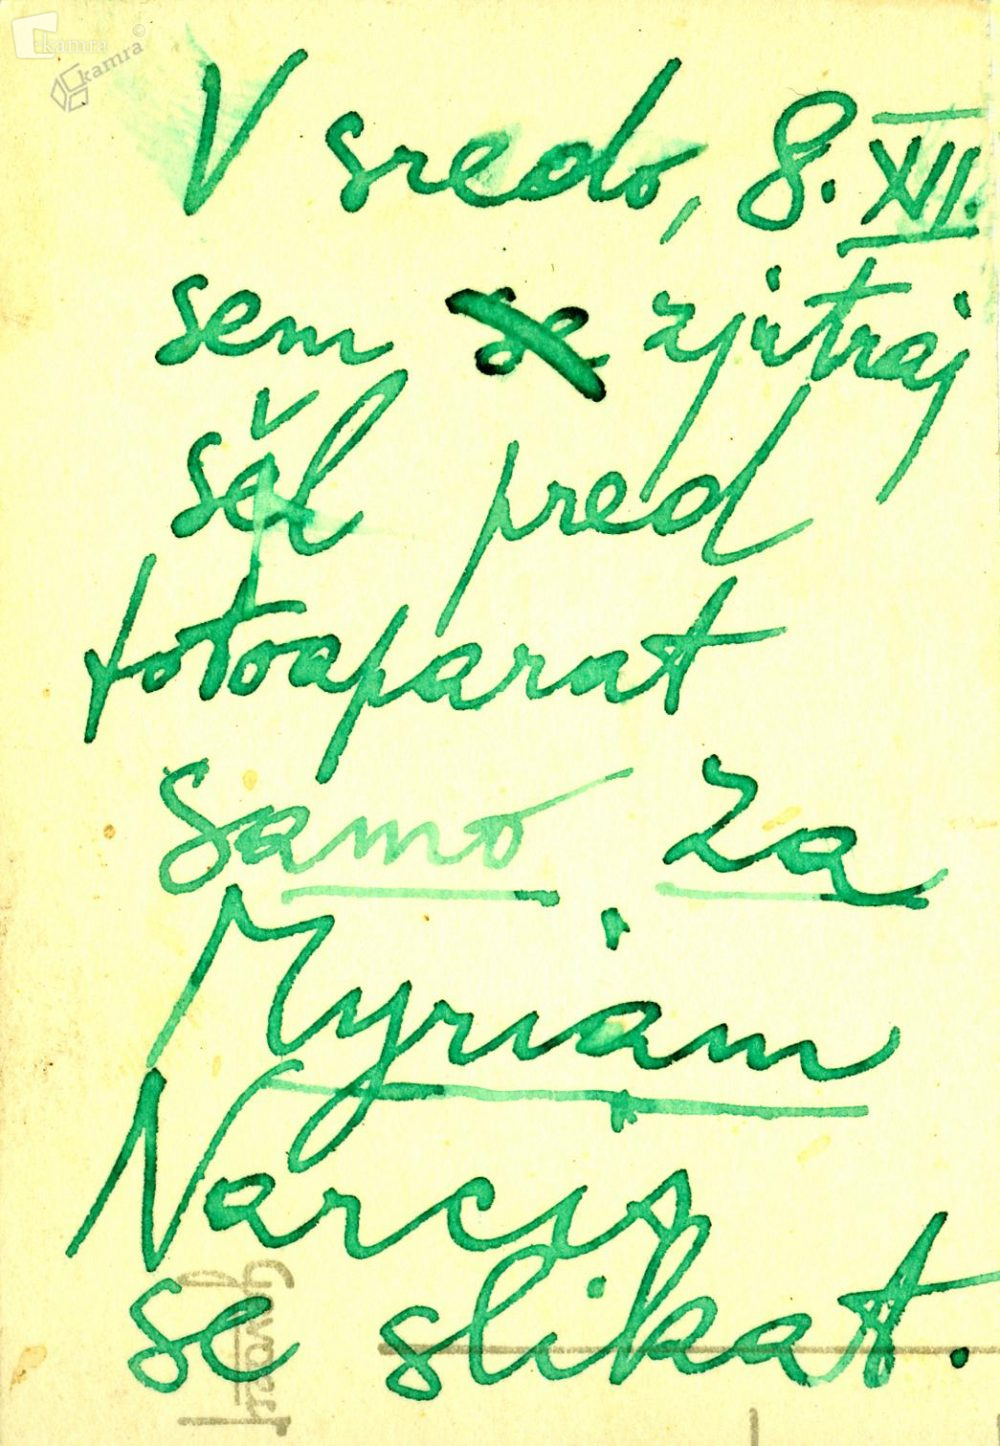 kamra
kamra ©
V sredo, 8. XII.
sem se zjutraj
šel pred
fotoaparat
samo za
Myriam
Narcis
se slikat.